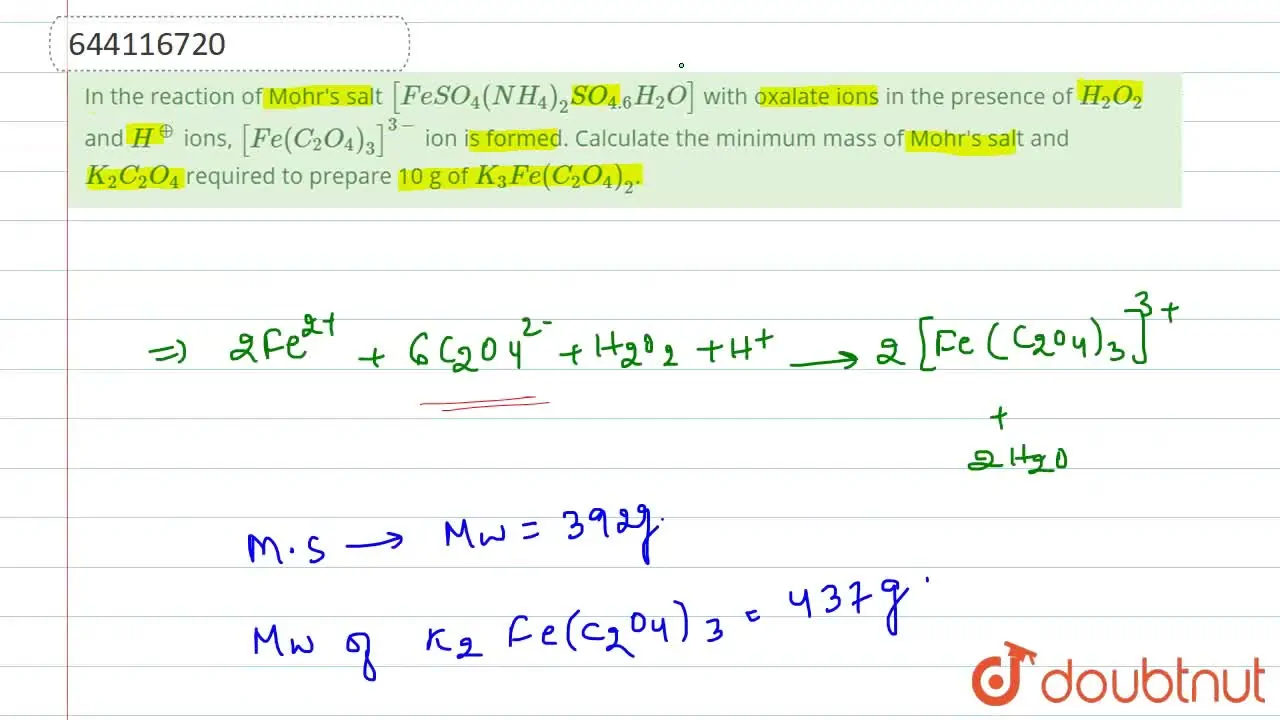 644116720
In the reaction of Mohr's salt [FeSO₄(NH₄)₂SO₄.₆H₂O] with oxalate ions in the presence of H₂O₂
and H^⊕ ions, [Fe(C₂O₄)₃]³⁻ ion is formed. Calculate the minimum mass of Mohr's salt and
K₂C₂O₄ required to prepare 10 g of K₃Fe(C₂O₄)₂.
⇒ 2Fe²⁺ + 6C₂O₄²⁻ + H₂O₂ + H⁺ → 2[Fe(C₂O₄)₃]³⁺
+
2H₂O
M.S → Mw = 392g.
Mw of K₂ Fe(C₂O₄)₃ = 437g.
doubtnut